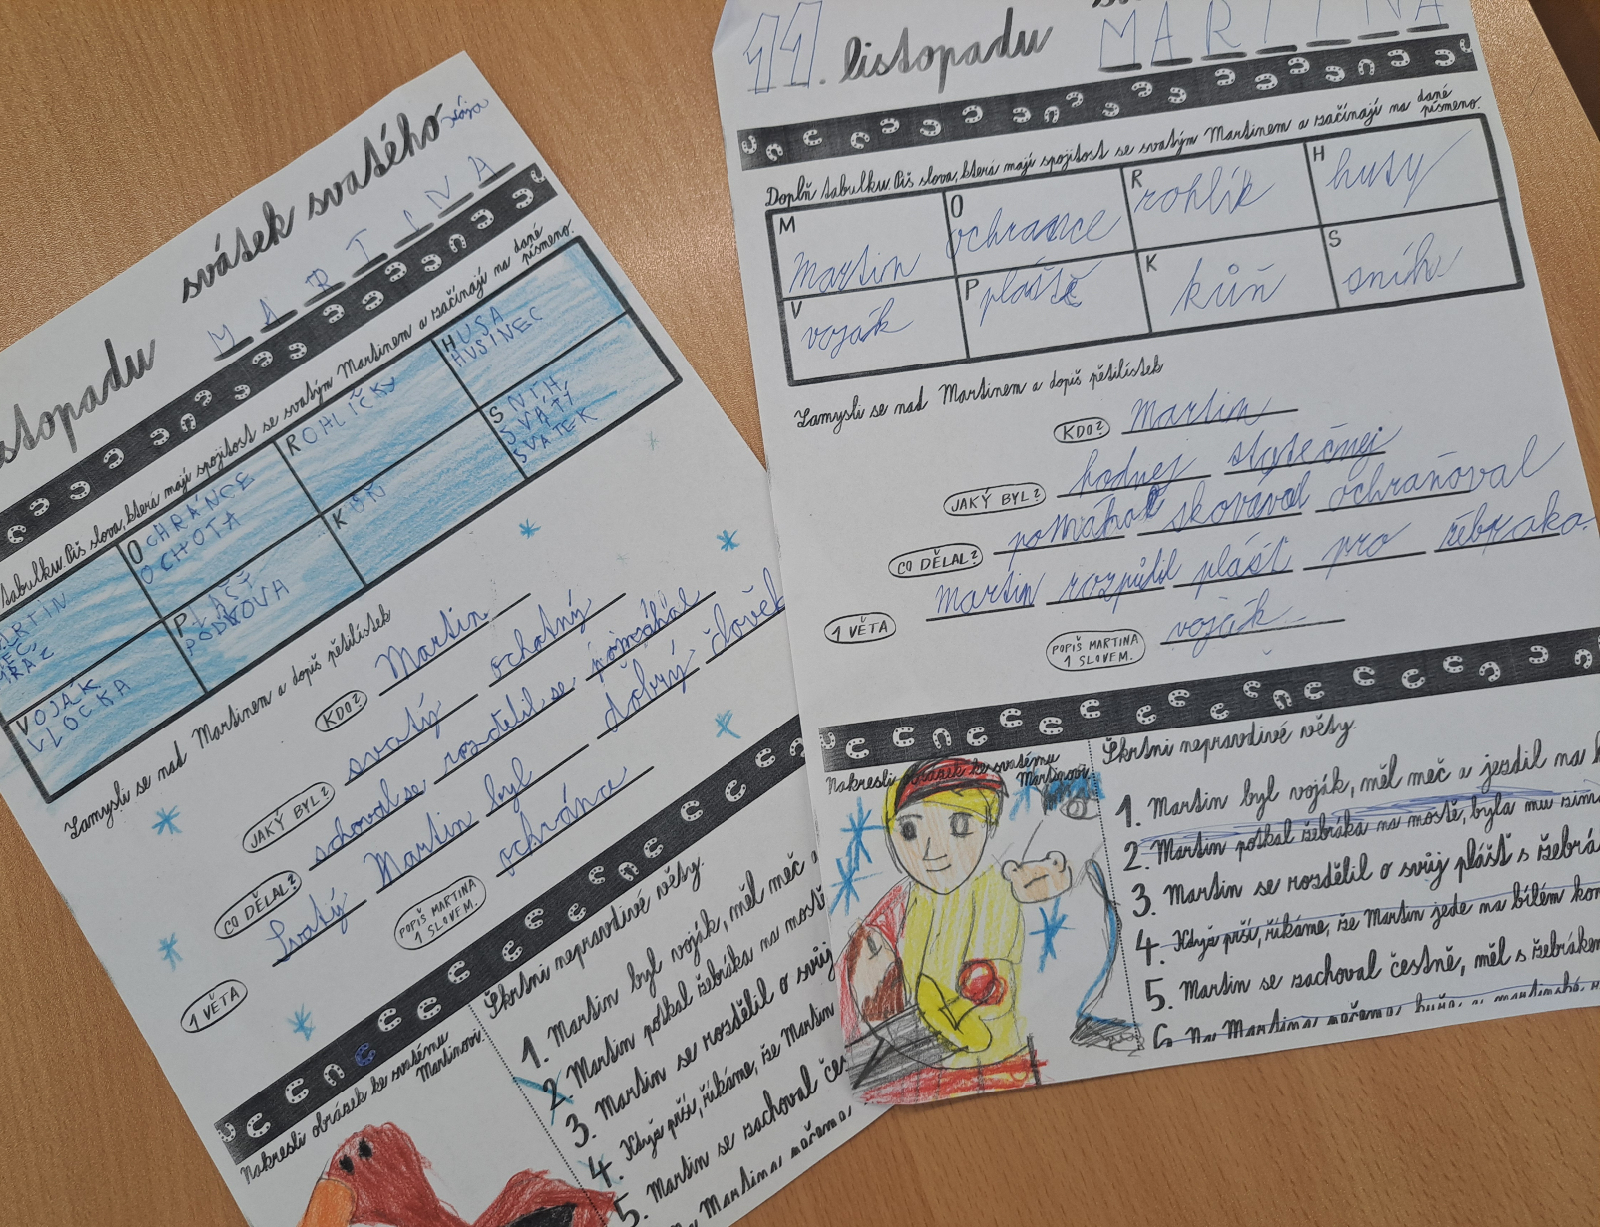 listopadu
svátek svatého
MARTINA
tabulku. Piš slova, která mají spojitost se svatým Martinem a začínají na dané písmeno.
O CHRÁNCE
OCHOTA
R OHLÍČKY
H USA
HUSINEC
V OJÁK
VLOČKA
P LÁŠŤ
PODKOVA
K ŮŇ
S NÍH
SVÁTÝ
SVÁTEK
Zamysli se nad Martinem a dopiš pětilístek
KDO? Martin
JAKÝ BYL? svatý ochotný
CO DĚLAL? schoval se rozdělil se pomáhal
1 VĚTA Svatý Martin byl dobrý člověk
POPIŠ MARTINA 1 SLOVEM. ochránce
Nakresli obrázek ke svatému Martinovi.
Škrtni nepravdivé věty.
1. Martin byl voják, měl meč a
2. Martin potkal žebráka na mostě
3. Martin se rozdělil o svůj
4. Když prší, říkáme, že Martin
5. Martin se zachoval čes
Na Martina pečeme
11. listopadu
MARTINA
Doplň tabulku. Piš slova, která mají spojitost se svatým Martinem a začínají na dané písmeno.
M martin
O ochrance
R rohlík
H husy
V voják
P pláště
K kůň
S sníh
Zamysli se nad Martinem a dopiš pětilístek
KDO? Martin
JAKÝ BYL? hodnej statečnej
CO DĚLAL? pomáhal skovával ochraňoval
1 VĚTA martin rozpůlil plášť pro žebráka.
POPIŠ MARTINA 1 SLOVEM. voják
Nakresli obrázek ke svatému Martinovi.
Škrtni nepravdivé věty.
1. Martin byl voják, měl meč a jezdil na k
2. Martin potkal žebráka na mostě, byla mu zima
3. Martin se rozdělil o svůj plášť s žebrá
4. Když prší, říkáme, že Martin jede na bílém kon
5. Martin se zachoval čestně, měl s žebrákem
6. Na Martina pečeme kuře a martinské